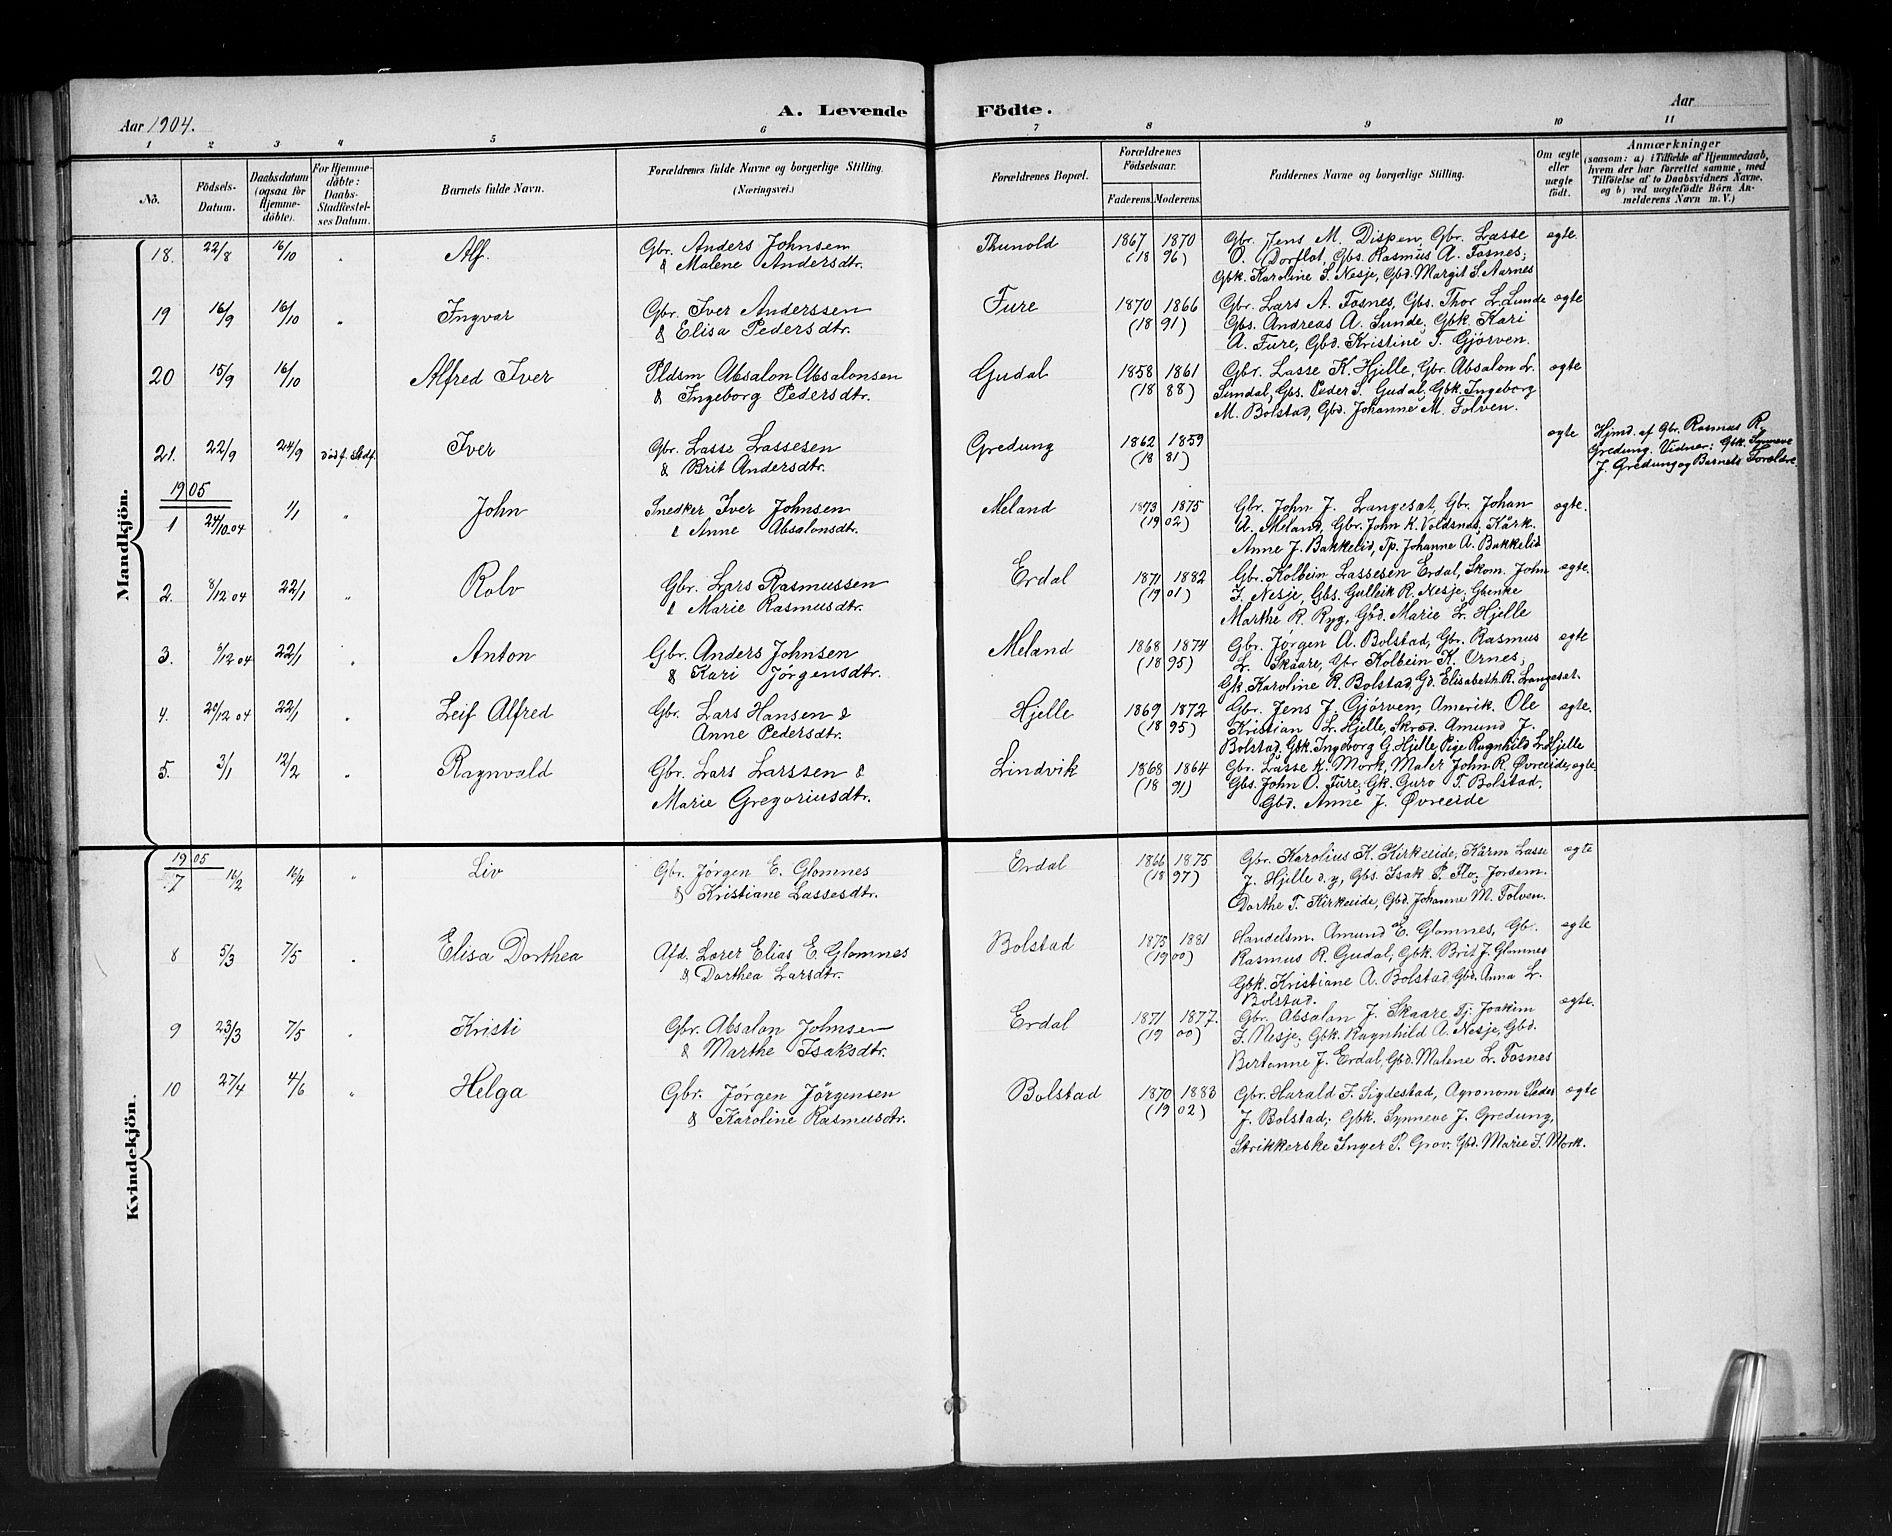 Aar 1904. A. Levende Födte. Aar
1 2 3 4 5 6 7 8 9 10 11
No. Födsels-Datum. Daabsdatum (ogsaa for Hjemme-döbte). For Hjemme-döbte: Daabs-Stadfæstel-ses Datum. Barnets fulde Navn. Forældrenes fulde Navne og borgerlige Stilling. (Næringsvei.) Forældrenes Bopæl. Forældrenes Födselsaar. Faderens. Moderens. Faddernes Navne og borgerlige Stilling. Om ægte eller uægte födt. Anmærkninger (saasom: a) i Tilfælde af Hjemmedaab, hvem der har forrettet samme, med Tilföielse af to Daabsvidners Navne, og b) ved uægtefödte Börn An-melderens Navn m. V.)
Mandkjön.
18. 22/8 16/10 " Alf. Gbr. Anders Johnsen Thunold 1867 1870 Gbr. Jens M. Dispen, Gbr. Lasse ægte.
& Malene Andersdtr. (1896) O. Dorflot, Gbs. Rasmus A. Fosnes,
Gbk. Karoline S. Nesje, Gbd. Margit S. Aarnes
19 16/9 16/10 " Ingvar Gbr. Iver Anderssen Fure 1870 1866 Gbr. Lars A. Fosnes, Gbs. Thor L. Lunde ægte
& Elisa Pedersdtr. (1891) Gbs. Andreas A. Sunde, Gbk. Kari
A. Fure, Gbd. Kristine T. Gjörven.
20 15/9 16/10 Alfred Iver Pldsm Absalon Absalonsen Gudal 1858 1861 Gbr. Lasse K. Hjelle, Gbr. Absalon L. ægte
& Ingeborg Pedersdtr. (1888) Sundal, Gbs. Peder S. Gudal, Gbk. Ingeborg
M. Bolstad, Gbd. Johanne M. Folven.
21. 22/9 24/9 död f. Stdf. Iver Gbr. Lasse Lassesen Gredung 1862 1859 ægte Hjmd. af Gbr. Rasmus R.
& Brit Andersdtr. (1881) Gredung. Vidner: Gbk. Synneve
J. Gredung og Barnets Forældre.
1905
1 24/10.04 1/1 " John Snedker Iver Johnsen Meland 1873 1875 Gbr. John J. Langesæt, Gbr. Johan ægte.
& Anne Absalonsdtr. (1902) A. Meland, Gbr. John K. Voldsnes, Kårk.
Anne J. Bakkelid, Tp. Johanne A. Bakkelid
2. 8/12 04 22/1 " Rolv Gbr. Lars Rasmussen Erdal 1871 1882 Gbr. Kolbein Lassesen Erdal, Skom. John ægte.
& Marie Rasmusdtr. (1901) I. Nesje, Gbs. Gulleik R. Nesje, Gbenke
Marthe R. Ryg, Gbd. Marie L. Hjelle
3. 8/12 04 22/1 " Anton Gbr. Anders Johnsen Meland 1868 1874 Gbr. Jörgen A. Bolstad, Gbr. Rasmus ægte
& Kari Jörgensdtr. (1895) L. Skaare, Gbr Kolbein K. Ornes,
Gk. Karoline R. Bolstad, Gd. Elisabeth R. Langesæt.
4. 20/12 04 22/1 " Leif Alfred Gbr. Lars Hansen & Hjelle 1869 1872 Gbr. Jens J. Gjörven, Amerik. Ole ægte.
Anne Pedersdtr. (1895) Kristian L. Hjelle, Skræd. Amund J.
Bolstad, Gbk. Ingeborg G. Hjelle, Pige Ragnhild L. Hjelle
5. 3/1 12/2 " Ragnvald Gbr. Lars Larssen & Lindvik 1868 1864 Gbr. Lasse K. Mork, Maler John R. Øvreeide, ægte
Marie Gregoriusdtr. (1891) Gbs. John O. Fure, Gk. Guro T. Bolstad,
Gbd. Anne J. Øvreeide
Kvindekjön.
1905
7 16/2 16/4 " Liv Gbr. Jörgen E. Glomnes Erdal 1866 1875 Gbr. Karolius K. Kirkeeide, Kårm Lasse ægte
& Kristiane Lassesdtr. (1897) J. Hjelle d. y, Gbs. Isak P. Flo, Jordem.
Dorthe T. Kirkeeide, Gbd. Johanne M. Folven.
8 5/3 7/5 " Elisa Dorthea Afd. Lærer Elias E. Glomnes Bolstad 1875 1881 Handelsm. Amund E. Glomnes, Gbr. ægte
& Dorthea Larsdtr. (1900) Rasmus R. Gudal, Gbk. Brit J. Glomnes
Gbk. Kristiane A. Bolstad, Gbd. Anna L.
Bolstad.
9 23/3 7/5 " Kristi Gbr. Absalon Johnsen Erdal 1871 1877. Gbr. Absalon J. Skaare Tj. Joakim ægte.
& Marthe Isaksdtr. (1900) I. Nesje, Gbk. Ragnhild A. Nesje, Gbd.
Bertenne J. Erdal, Gbd. Malene L. Fosnes
10 27/4 4/6 " Helga Gbr. Jörgen Jörgensen Bolstad 1870 1883 Gbr. Harald F. Sigdestad, Agronom Peder ægte
& Karoline Rasmusdtr. (1902) J. Bolstad, Gbk. Synneve J. Gredung,
Strikkerske Inger P. Grov. Gbd. Marie J. Mork.